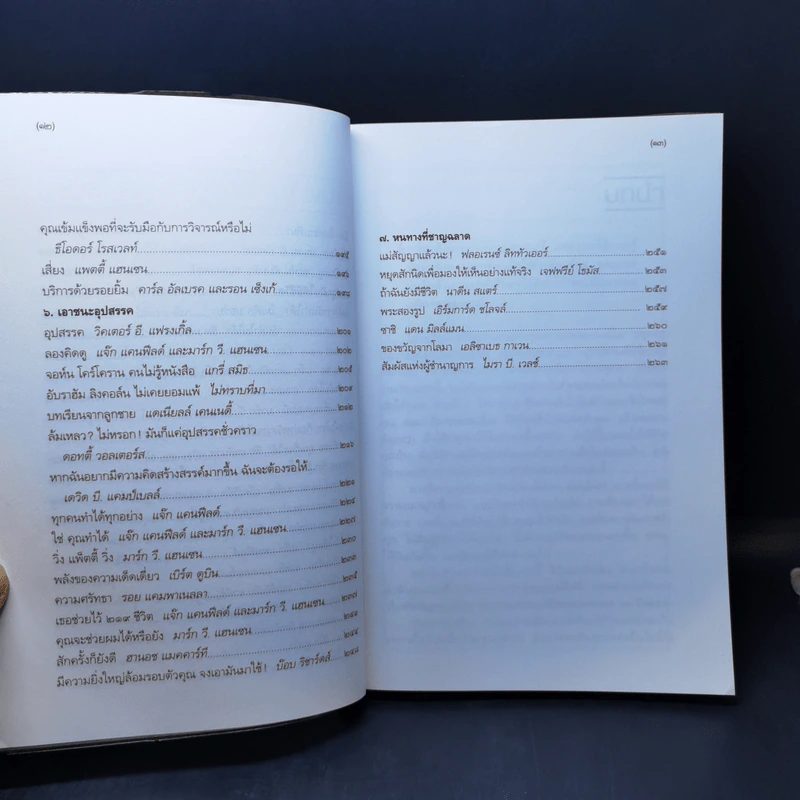 (๑๒)
คุณเข้มแข็งพอที่จะรับมือกับการวิจารณ์หรือไม่
ธีโอดอร์ โรสเวลท์ ๑๙๕
เสี่ยง แพตตี้ แฮนเซน ๑๙๖
บริการด้วยรอยยิ้ม คาร์ล อัลเบรค และรอน เซ็งเก้ ๑๙๘
๖. เอาชนะอุปสรรค
อุปสรรค วิคเตอร์ อี. แฟรงเกิ้ล ๒๐๑
ลองคิดดู แจ๊ก แคนฟิลด์ และมาร์ก วี. แฮนเซน ๒๐๒
จอห์น โคร์โคราน คนไม่รู้หนังสือ แกรี่ สมิธ ๒๐๕
อับราฮัม ลิงคอล์น ไม่เคยยอมแพ้ ไม่ทราบที่มา ๒๐๙
บทเรียนจากลูกชาย แดเนียลล์ เคนเนดี้ ๒๑๒
ล้มเหลว? ไม่หรอก! มันก็แค่อุปสรรคชั่วคราว
ดอทตี้ วอลเตอร์ส ๒๑๖
หากฉันอยากมีความคิดสร้างสรรค์มากขึ้น ฉันจะต้องรอให้...
เดวิด บี. แคมป์เบลล์ ๒๒๑
ทุกคนทำได้ทุกอย่าง แจ๊ก แคนฟิลด์ ๒๒๔
ใช่ คุณทำได้ แจ๊ก แคนฟิลด์ และมาร์ก วี. แฮนเซน ๒๒๗
วิ่ง แพ็ตตี้ วิ่ง มาร์ก วี. แฮนเซน ๒๓๐
พลังของความเด็ดเดี่ยว เบิร์ต ดูบิน ๒๓๓
ความศรัทธา รอย แคมพาเนลลา ๒๓๕
เธอช่วยไว้ ๒๑๙ ชีวิต แจ๊ก แคนฟิลด์ และมาร์ก วี. แฮนเซน ๒๓๗
คุณจะช่วยผมได้หรือยัง มาร์ก วี. แฮนเซน ๒๔๑
สักครั้งก็ยังดี ฮานอช แมคคาร์ที ๒๔๔
มีความยิ่งใหญ่ล้อมรอบตัวคุณ จงเอามันมาใช้! บ๊อบ ริชาร์ดส์ ๒๔๘
(๑๓)
๗. หนทางที่ชาญฉลาด
แม่สัญญาแล้วนะ! ฟลอเรนซ์ ลิททัวเออร์ ๒๕๑
หยุดสักนิดเพื่อมองให้เห็นอย่างแท้จริง เจฟฟรีย์ โธมัส ๒๕๓
ถ้าฉันยังมีชีวิต นาดีน สแตร์ ๒๕๗
พระสองรูป เอิร์มการ์ด ชโลจล์ ๒๕๙
ซาชิ แดน มิลล์แมน ๒๖๐
ของขวัญจากโลมา เอลิซาเบธ กาเวน ๒๖๑
สัมผัสแห่งผู้ชำนาญการ ไมรา บี. เวลช์ ๒๖๓